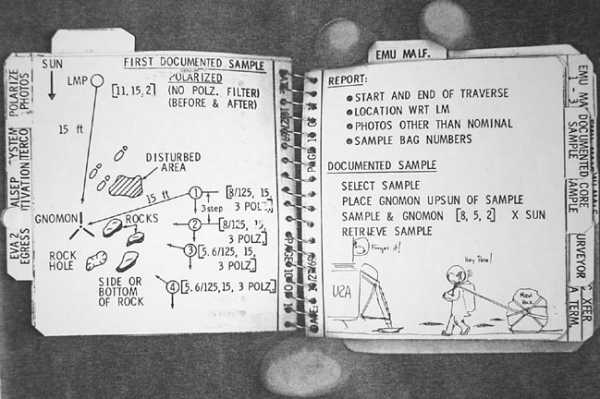 FIRST DOCUMENTED SAMPLE
SUN
LMP
POLARIZED
[11, 15, 2] (NO POLZ. FILTER)
(BEFORE & AFTER)
15 ft
DISTURBED
AREA
15 ft
1 [8/125, 15,
3 POLZ]
3 step
GNOMON
ROCKS
2 [8/125, 15,
3 POLZ]
3 [5.6/125, 15,
3 POLZ]
ROCK
HOLE
SIDE OR
BOTTOM
OF ROCK
4 [5.6/125, 15, 3 POLZ]
POLARIZE
PHOTOS
ALSEP
EVA 2
EGRESS
EMU MALF.
REPORT:
START AND END OF TRAVERSE
LOCATION WRT LM
PHOTOS OTHER THAN NOMINAL
SAMPLE BAG NUMBERS
DOCUMENTED SAMPLE
SELECT SAMPLE
PLACE GNOMON UPSUN OF SAMPLE
SAMPLE & GNOMON [8, 5, 2] X SUN
RETRIEVE SAMPLE
Forget it!
Hey Pete!
USA
EMU MA
1 - 3
DOCUMENTED CORE
SAMPLE
URVEYOR
XFER
A TERM.